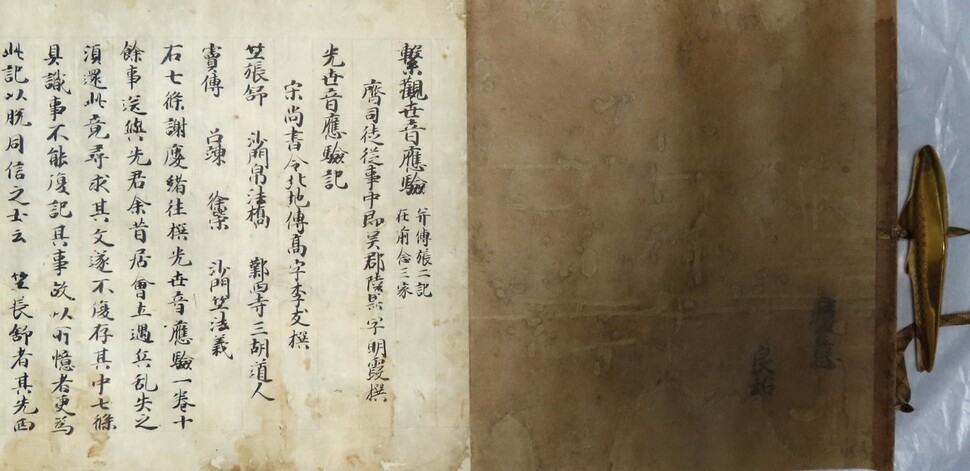 良祐
繫觀世音應驗 并傅張二記 在前合三家
齊司徒從事中郎吴郡陸杲字明霞撰
光世音應驗記
宋尚書令北地傅亮字季友撰
竺長舒 沙門帛法橋 鄴西寺三胡道人
竇傅 吕竦 徐榮 沙門竺法義
右七條謝慶緒往撰光世音應驗一卷十
餘事送與先君余昔居會土遇兵乱失之
湏還此竟尋求其文遂不復存其中七條
具識事不能復記其事故以所憶者更爲
此記以悅同信之士云 竺長舒者其先西